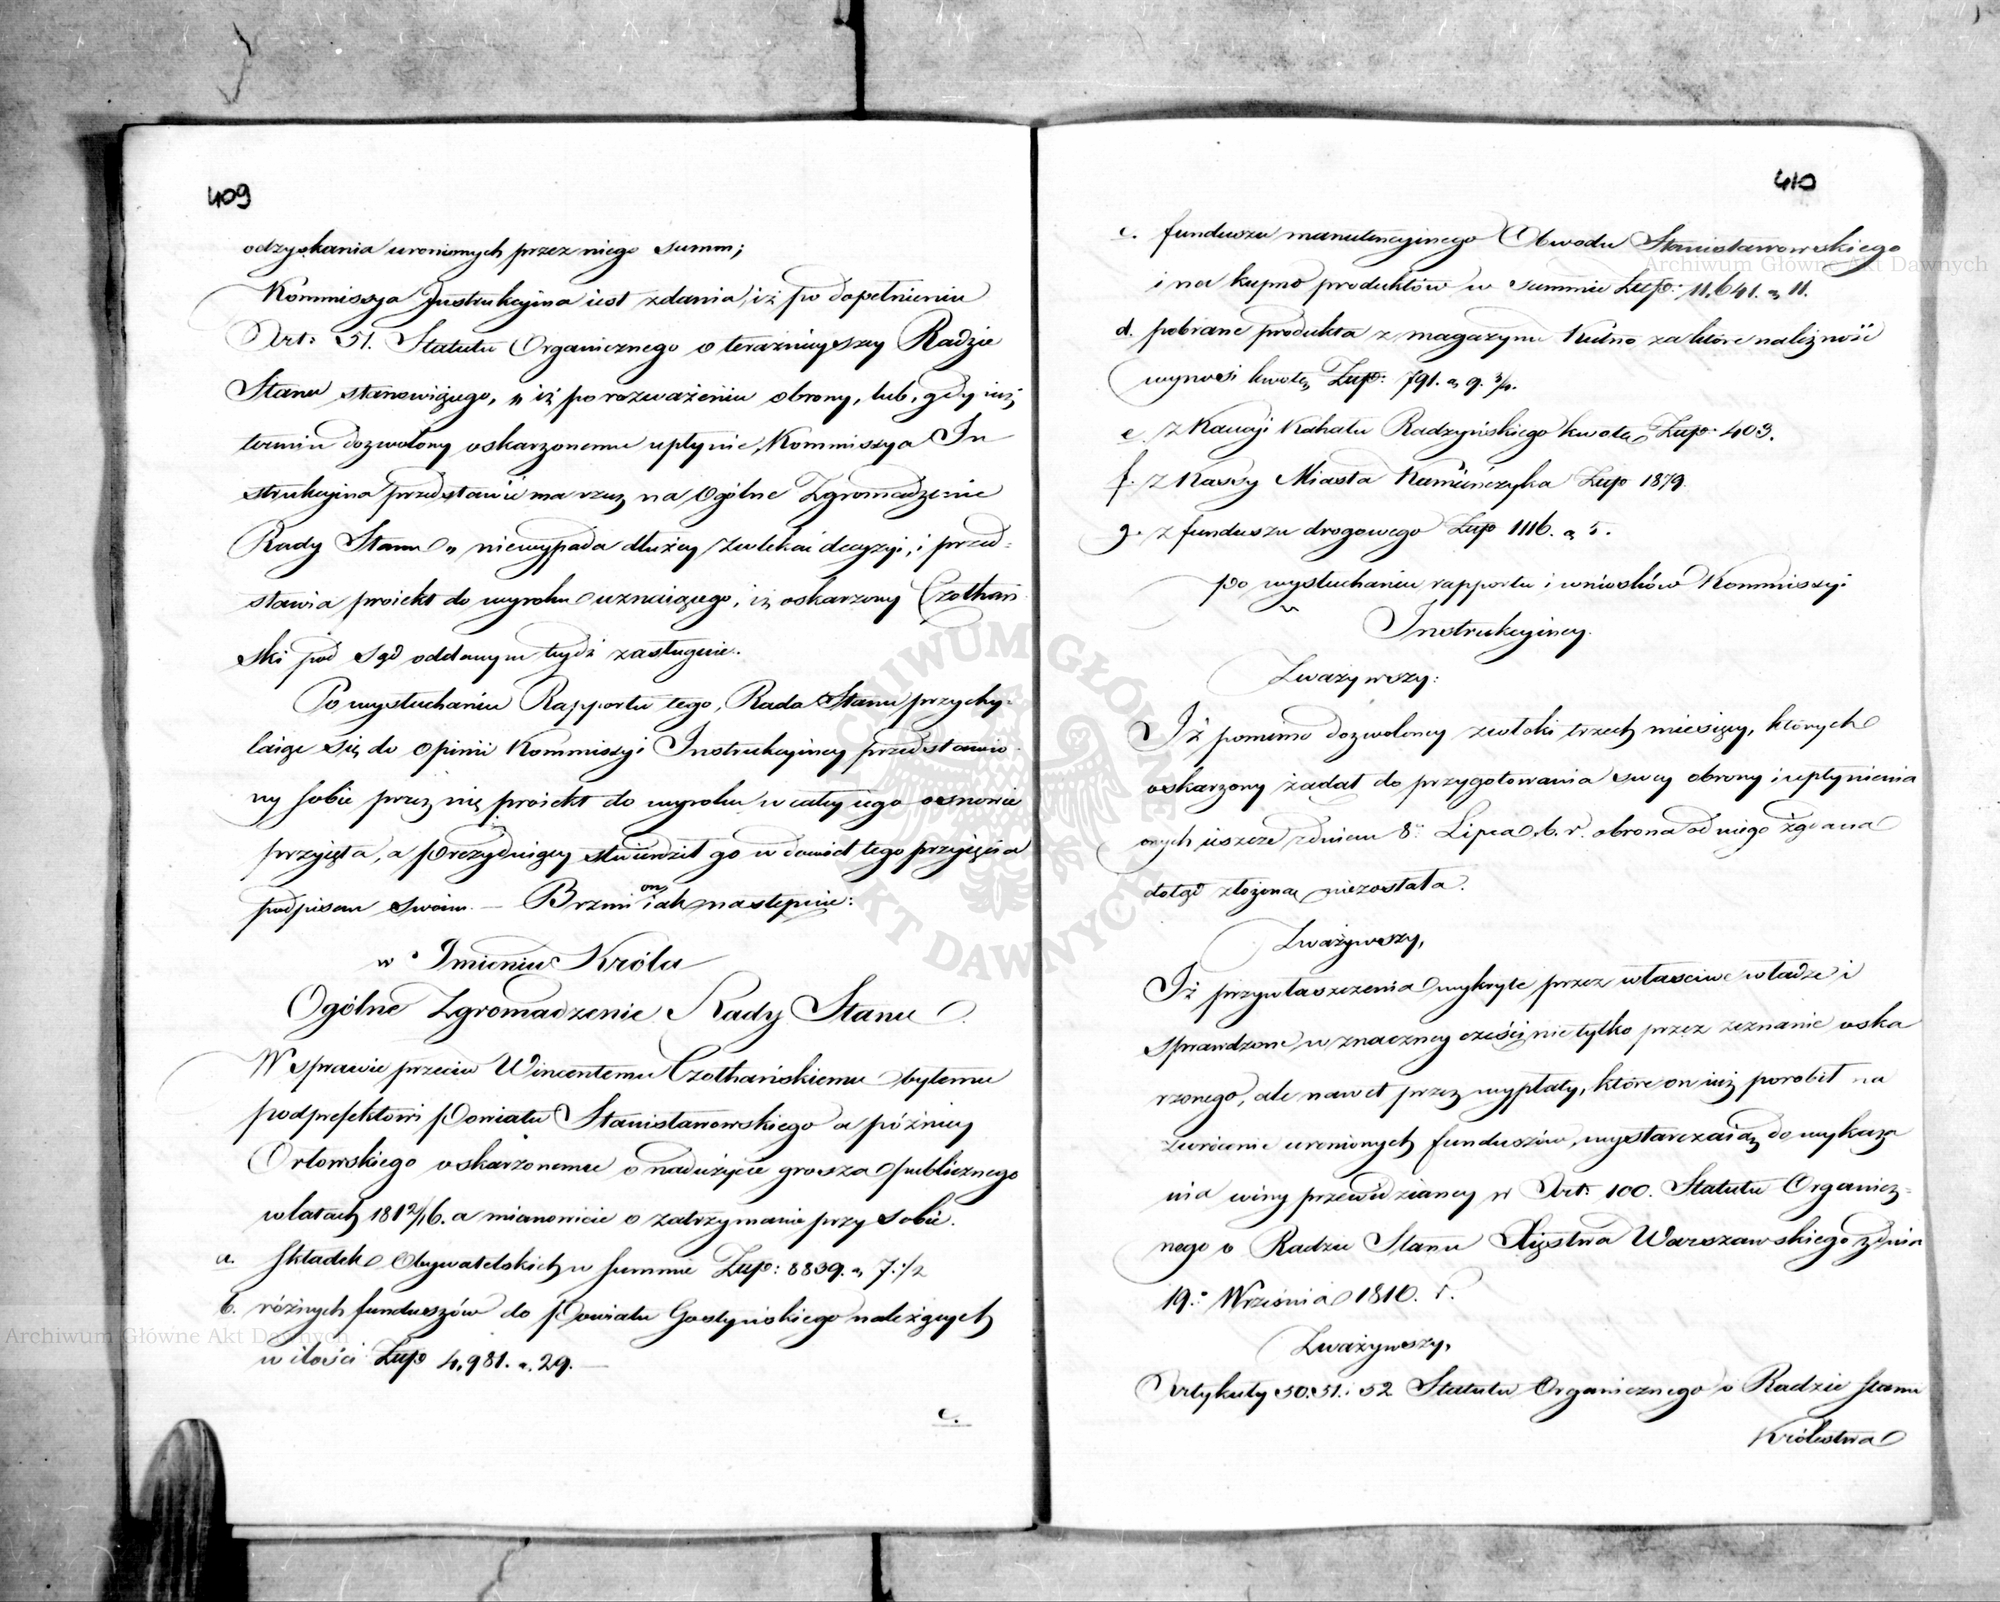 409
odzyskania uronionych przez niego summ;
Kommissya Instrukcyina iest zdania, iż po dopełnieniu
Art: 51. Statutu Organicznego o teraźnieyszey Radzie
Stanu stanowiącego, „iż po rozważeniu obrony, lub, gdy iuż
termin dozwolony oskarżonemu upłynie, Kommissya In
strukcyina przedstawić ma rzecz na Ogólne Zgromadzenie
Rady Stanu„ niewypada dłużey zwlekać decyzyi, i przed=
stawia proiekt do wyroku uznaiącego, iż oskarżony Czołhań
ski pod Sąd oddanym bydź zasługuie.
Po wysłuchaniu Rapportu tego, Rada Stanu przychy=
laiąc się do opinii Kommissyi Instrukcyiney przedstawio
ny sobie przez nię proiekt do wyroku w całey iego osnowie
przyięła, a Prezyduiący stwierdził go w dowód tego przyięcia
podpisem swoim. — Brzmi on iak następuie:
w Imieniu Króla
Ogólne Zgromadzenie Rady Stanu
W sprawie przeciw Wincentemu Czołhańskiemu byłemu
podprefektowi Powiatu Stanisławowskiego a późniey
Orłowskiego oskarżonemu o nadużycie grosza publicznego
w latach 1812/16. a mianowicie o zatrzymanie przy sobie.
a. Składek Obywatelskich w summie Złłp: 8839. „ 7. 1/2
b. różnych funduszów do Powiatu Gostyńskiego należących
w ilości Złłp 4,981. „ 29. —
c.
410
c. funduszu manutencyinego Obwodu Stanisławowskiego
i na kupno produktów w summie Złłp: 11,641. „ 11.
d. pobrane produkta z magazynu Kutno, za które należność
wynosi kwotę Złłp: 791. „ 9. 3/4.
e. z Kaucyi Kahału Radzyńskiego kwotę Złłp. 403.
f. z Kassy Miasta Kamieńczyka Złłp 1879.
g. z funduszu drogowego Złłp 1116. „ 5.
po wysłuchaniu rapportu i wniosków Kommissyi
Instrukcyiney.
Zważywszy:
Iż pomimo dozwoloney zwłoki trzech miesięcy, których
oskarżony żądał do przygotowania swey obrony i upłynienia
onych ieszcze z dniem 8. Lipca b. r. obrona od niego żądana
dotąd złożoną niezostała.
Zważywszy,
Iż przywłaszczenia wykryte przez właściwe władze i
sprawdzone w znaczney części nietylko przez zeznanie oska
rżonego, ale nawet przez wypłaty, które on iuż porobił na
zwrócenie uronionych funduszów, wystarczaią do wykaza
nia winy przewidzianey w Art: 100. Statutu Organicz=
nego o Radzie Stanu Xięstwa Warszawskiego z dnia
19. Września 1810. r.
Zważywszy,
Artykuły 50. 51. i 52 Statutu Organicznego o Radzie Stanu
Królestwa
Archiwum Główne Akt Dawnych
Archiwum Główne Akt Dawnych
ARCHIWUM GŁÓWNE AKT DAWNYCH